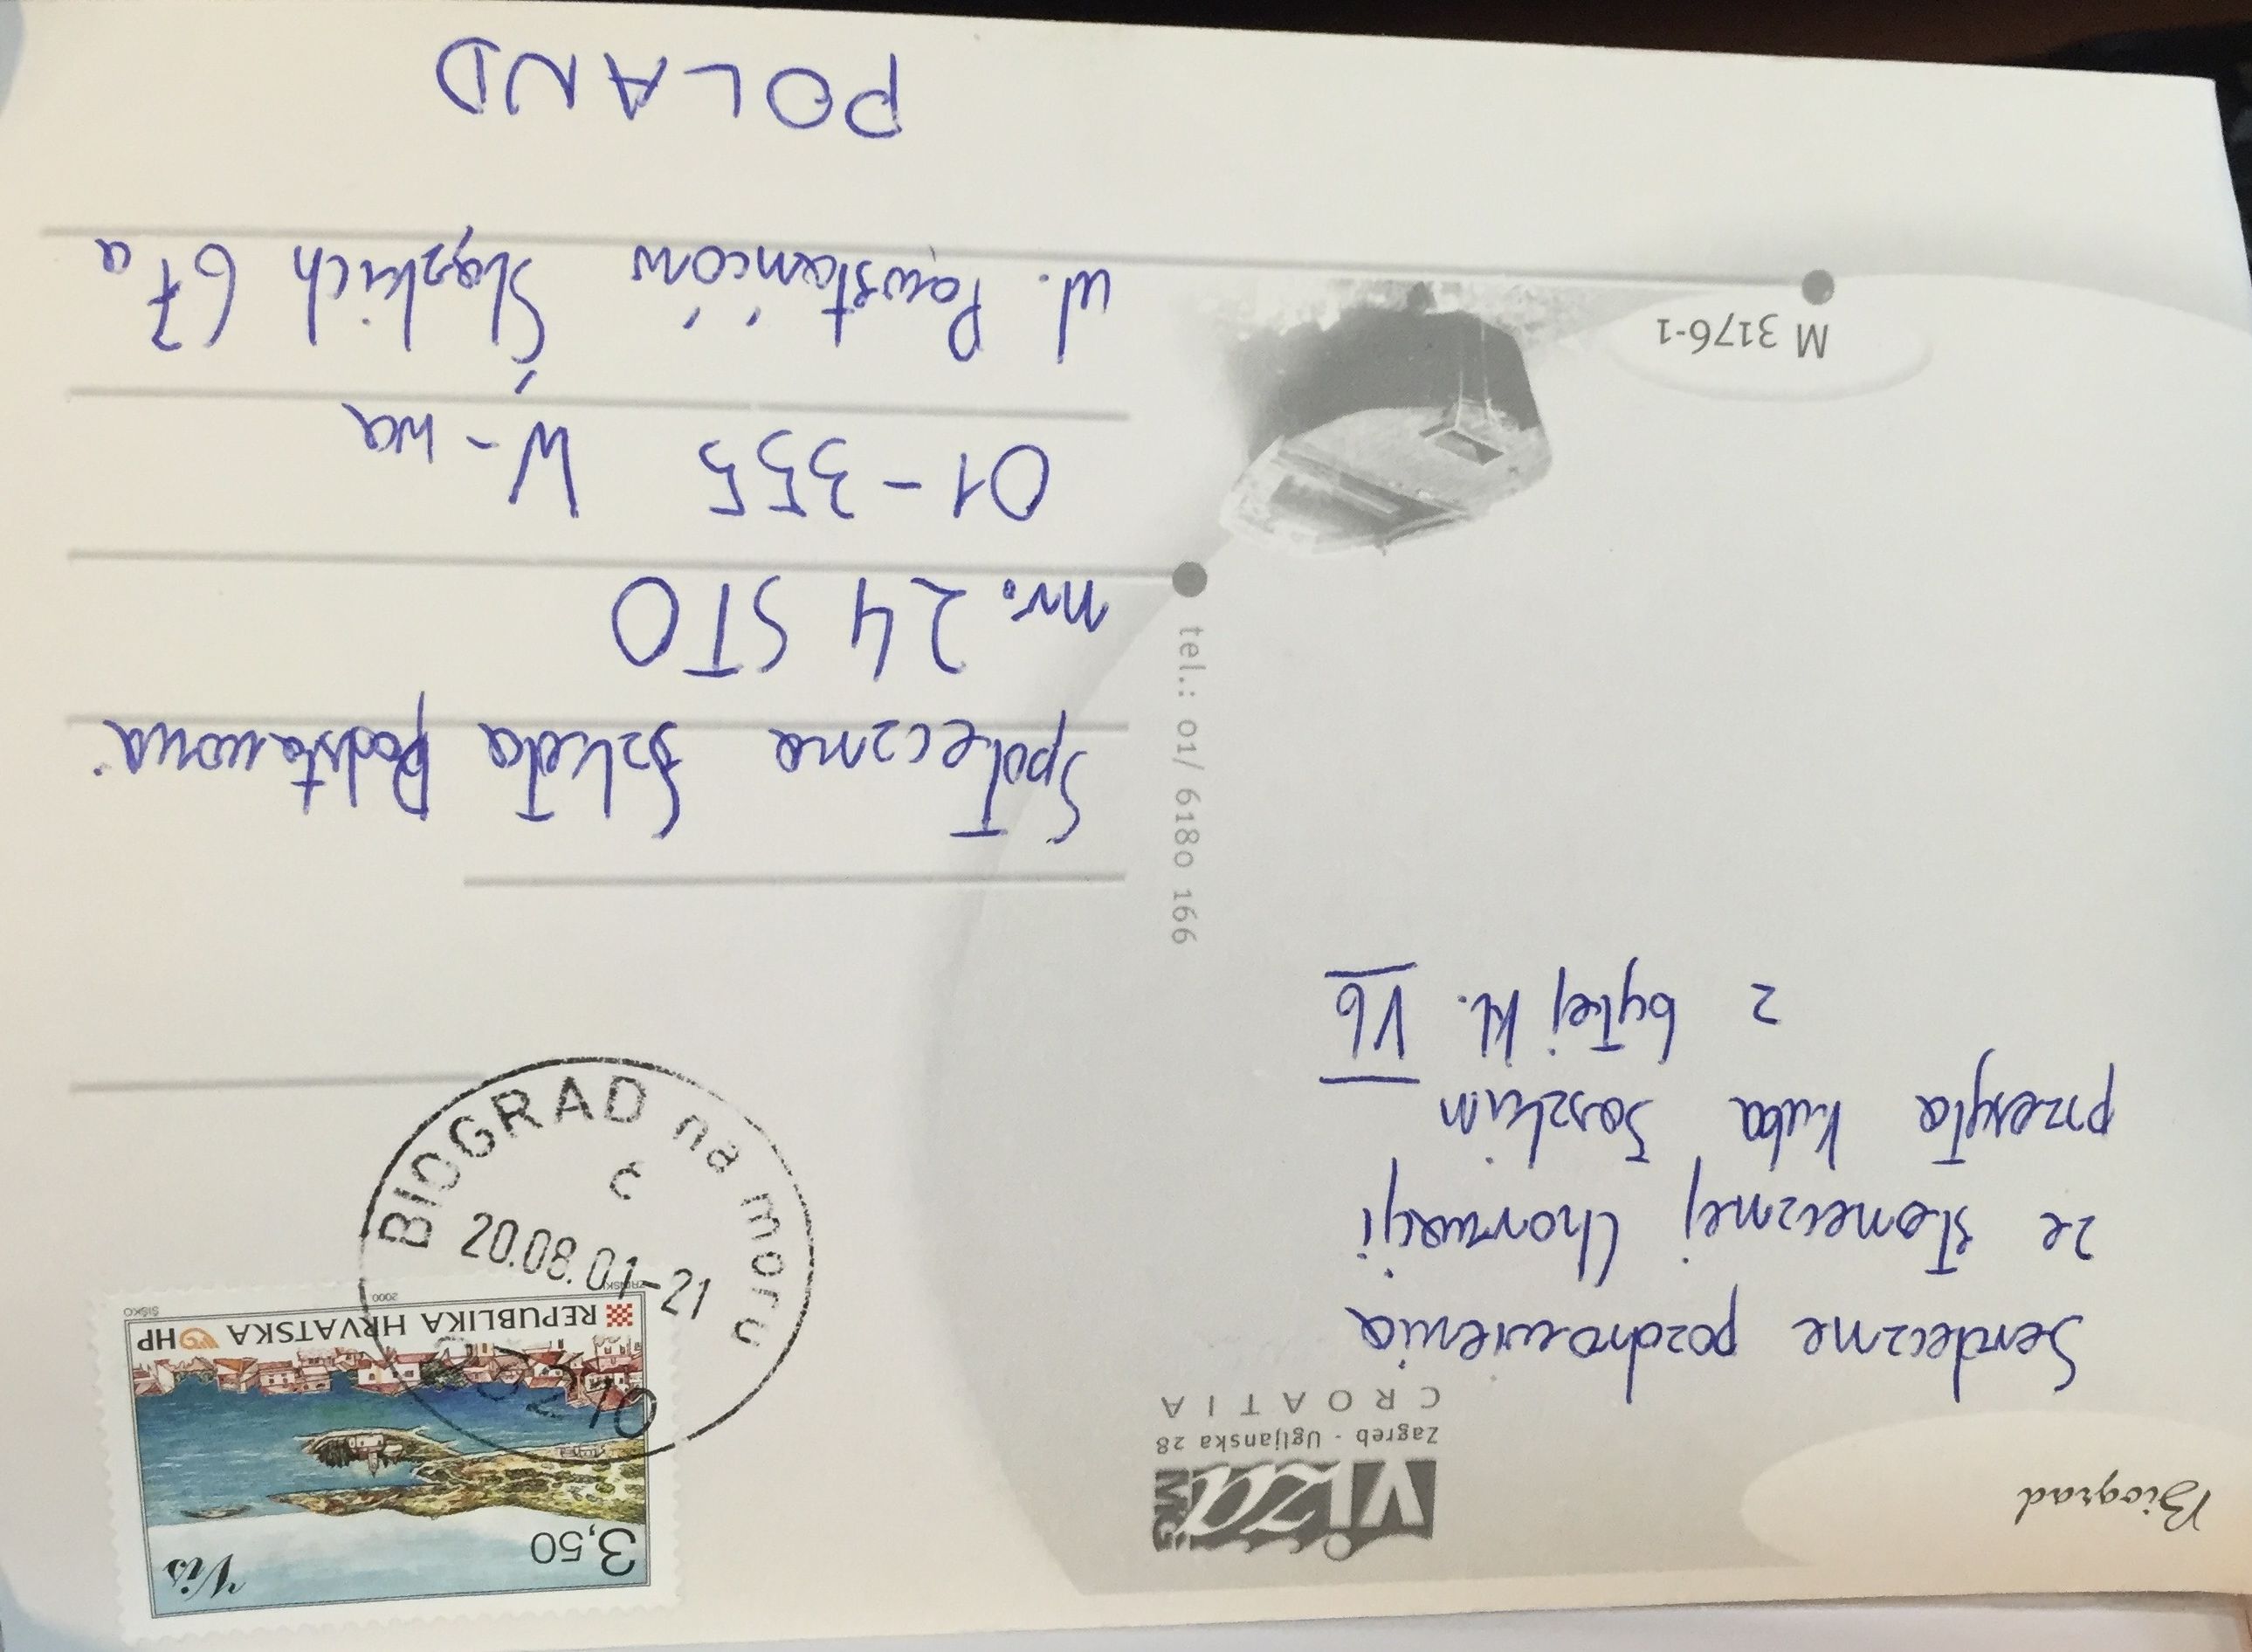 Biograd
viza
MG
Zagreb - Ugljanska 28
CROATIA
Serdeczne pozdrowienia
ze słonecznej Chorwacji
przesyła Kuba
z byłej kl. VI b
tel.: 01/ 6180 166
M 3176-1
3,50
Vis
REPUBLIKA HRVATSKA HP
ŠIŠKO 2000 ZRINSKI
BIOGRAD na moru
c
20.08.01-21
Społeczna Szkoła Podstawowa
nr. 24 STO
01-355 W-wa
ul. Powstańców Śląskich 67a
POLAND